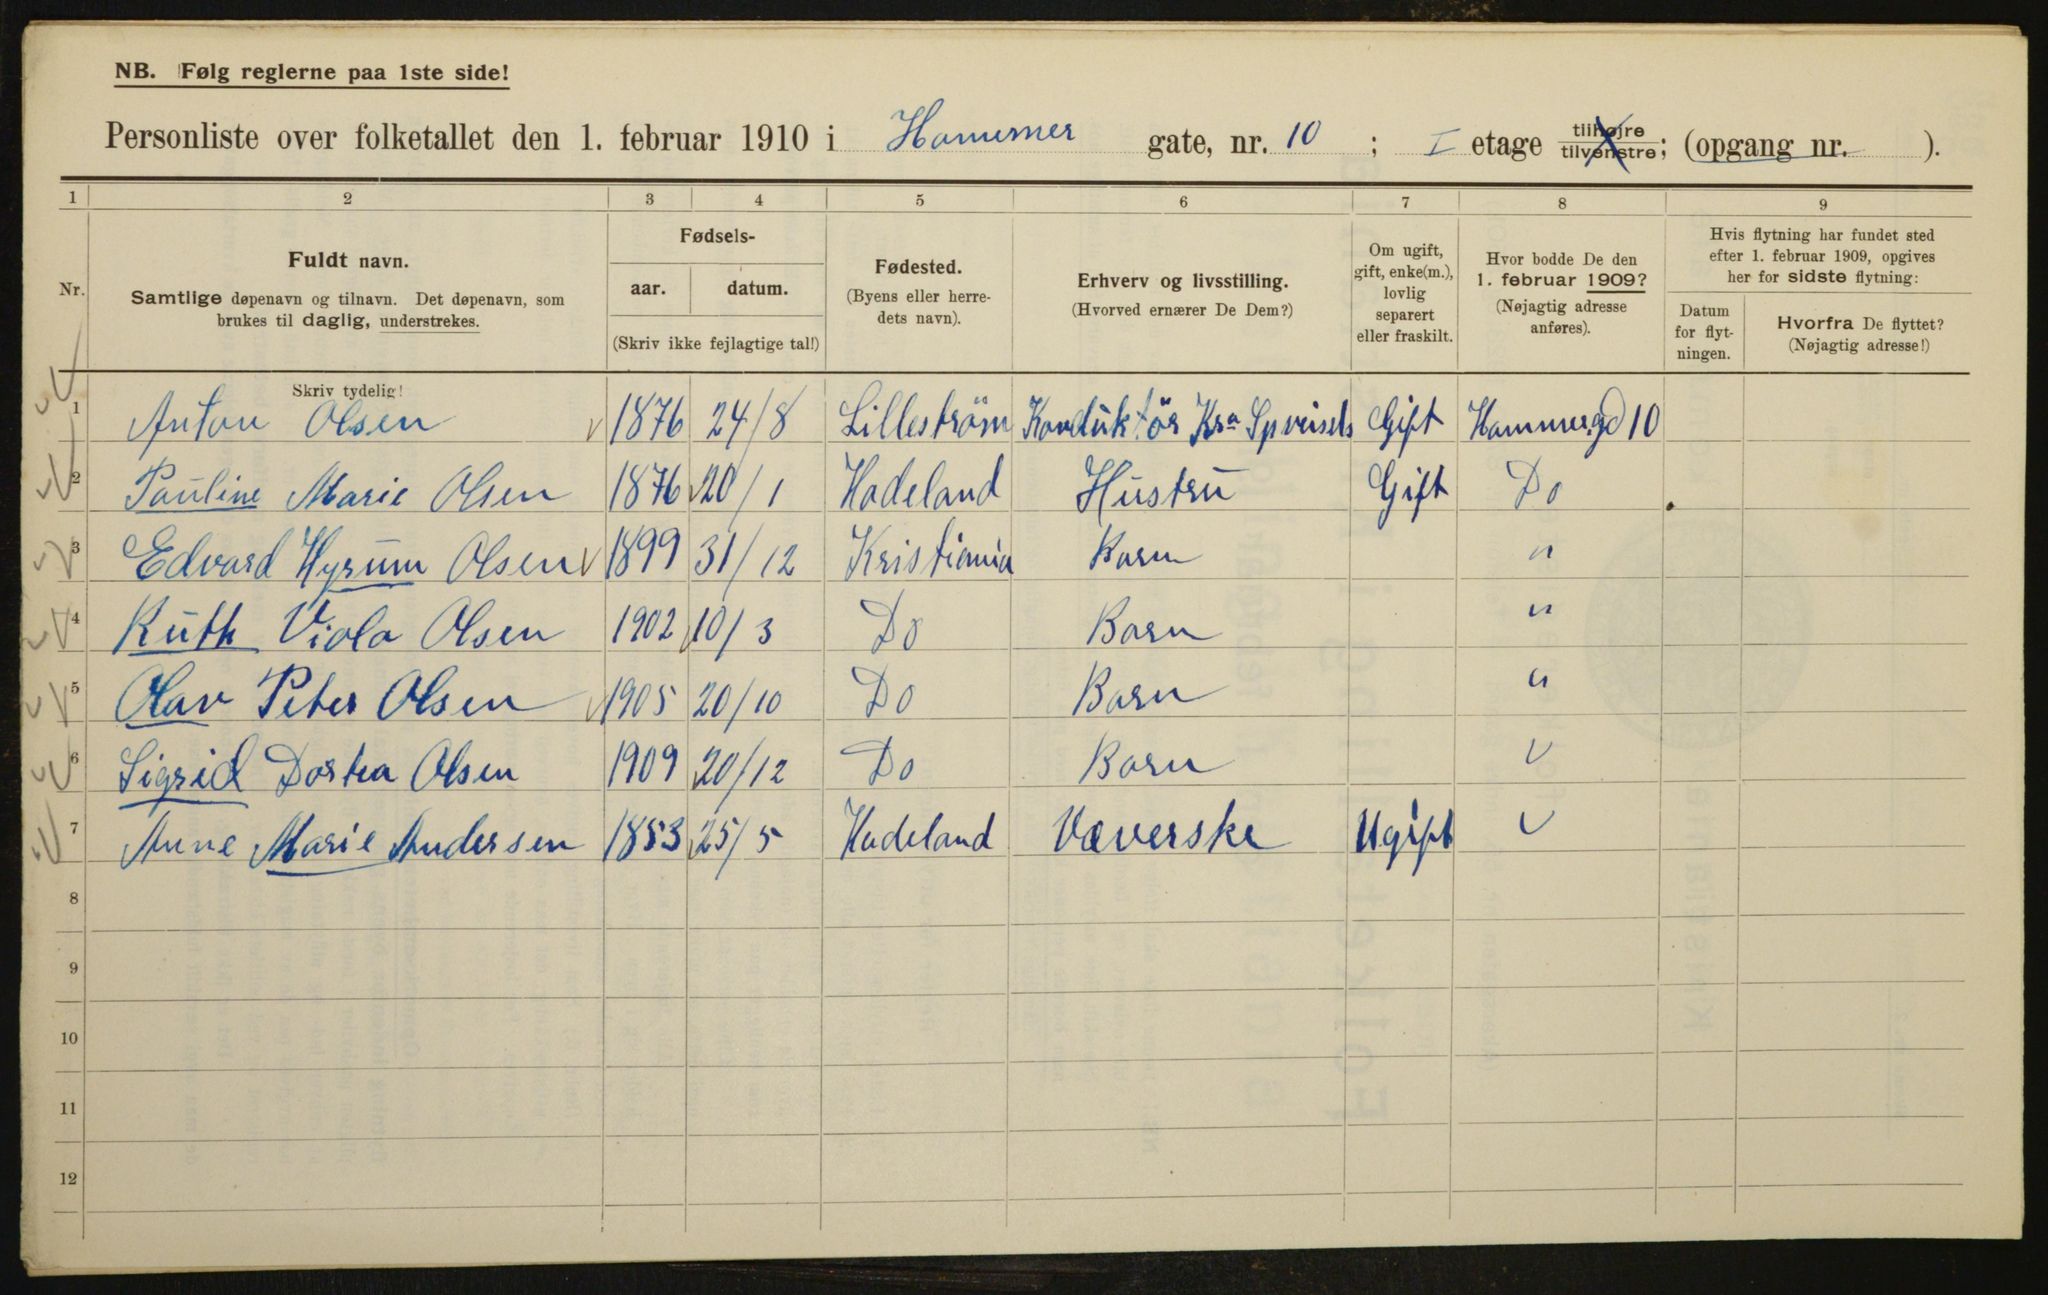 NB. Følg reglerne paa 1ste side!
Personliste over folketallet den 1. februar 1910 i Hammer gate, nr. 10 ; I etage tilhøjre tilvenstre; (opgang nr. ).
1 2 3 4 5 6 7 8 9
Nr.
Fuldt navn.
Samtlige døpenavn og tilnavn. Det døpenavn, som
brukes til daglig, understrekes.
Skriv tydelig!
Fødsels-
aar. datum.
(Skriv ikke fejlagtige tal!)
Fødested.
(Byens eller herre-
dets navn).
Erhverv og livsstilling.
(Hvorved ernærer De Dem?)
Om ugift,
gift, enke(m.),
lovlig
separert
eller fraskilt.
Hvor bodde De den
1. februar 1909?
(Nøjagtig adresse
anføres).
Hvis flytning har fundet sted
efter 1. februar 1909, opgives
her for sidste flytning:
Datum
for flyt-
ningen.
Hvorfra De flyttet?
(Nøjagtig adresse!)
1 Anton Olsen 1876 24/8 Lilleström Konduktör Kra Gift Hammergd 10
2 Pauline Marie Olsen 1876 20/1 Hadeland Hustru Gift Do
3 Edvard Hyrum Olsen 1899 31/12 Kristiania Barn "
4 Ruth Viola Olsen 1902 10/3 Do Barn "
5 Olav Peter Olsen 1905 20/10 Do Barn "
6 Sigrid Dortea Olsen 1909 20/12 Do Barn "
7 Anne Marie Andersen 1853 25/5 Hadeland Væverske Ugift "
8
9
10
11
12